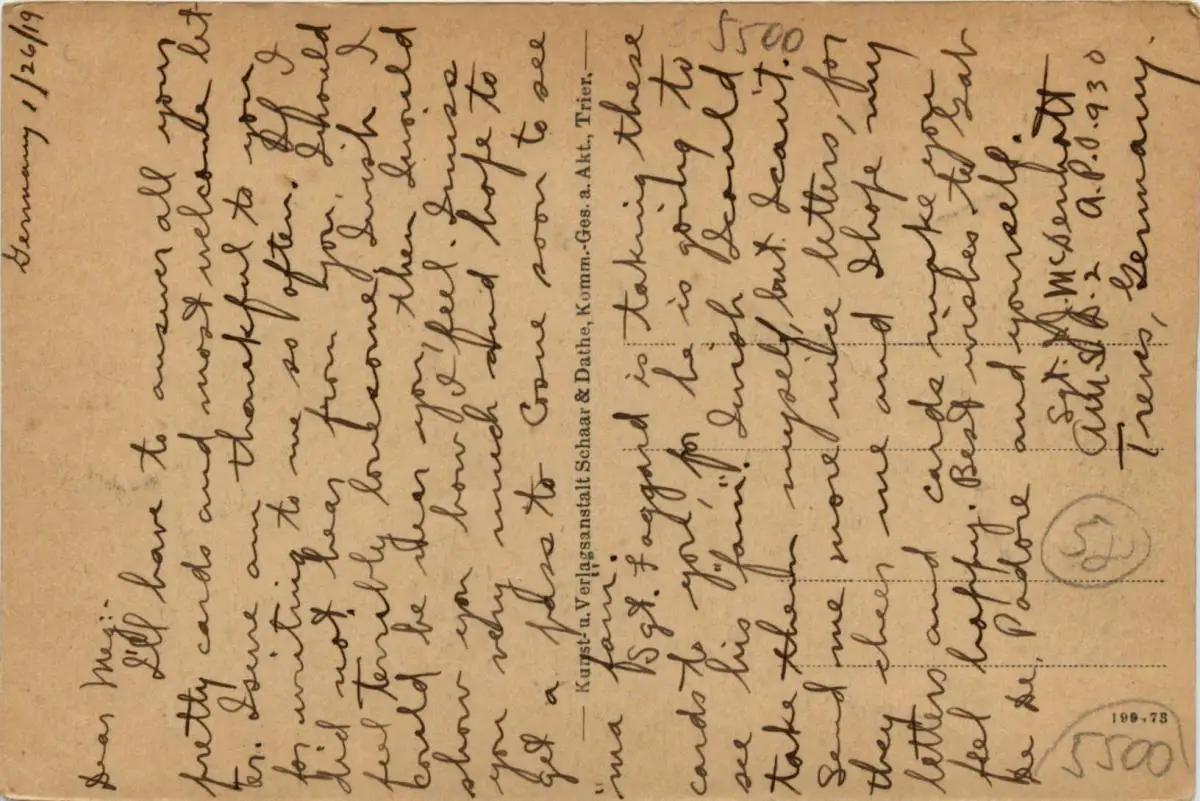 Germany 1/26/19
Dear Meg:-
I'll have to answer all your
pretty cards and most welcome let
ter. I sure am thankful to you
for writing to me so often. If I
did not hear from you, I should
feel terribly lonesome. I wish I
could be near you, then I would
show you how I feel. I miss
you very much and hope to
get a pass to come soon to see
"ma fam".
Kunst- u. Verlagsanstalt Schaar & Dathe, Komm.-Ges. a. Akt., Trier.
Sgt. Faggard is taking these
cards to you, for he is going to
see his "fam". I wish I could
take them myself, but I can't.
Send me more nice letters, for
they cheer me and I hope my
letters and cards make you
feel happy. Best wishes to Gab
De, Padore and yourself.
Sgt. J.
A.P.O. 930
Treves, Germany.
5500
5500
199,73